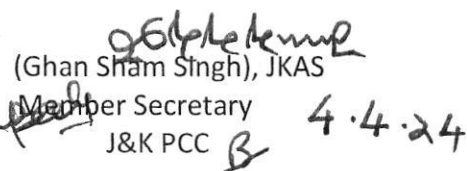 (Ghan Sham Singh), JKAS
Member Secretary
J&K PCC
4.4.24